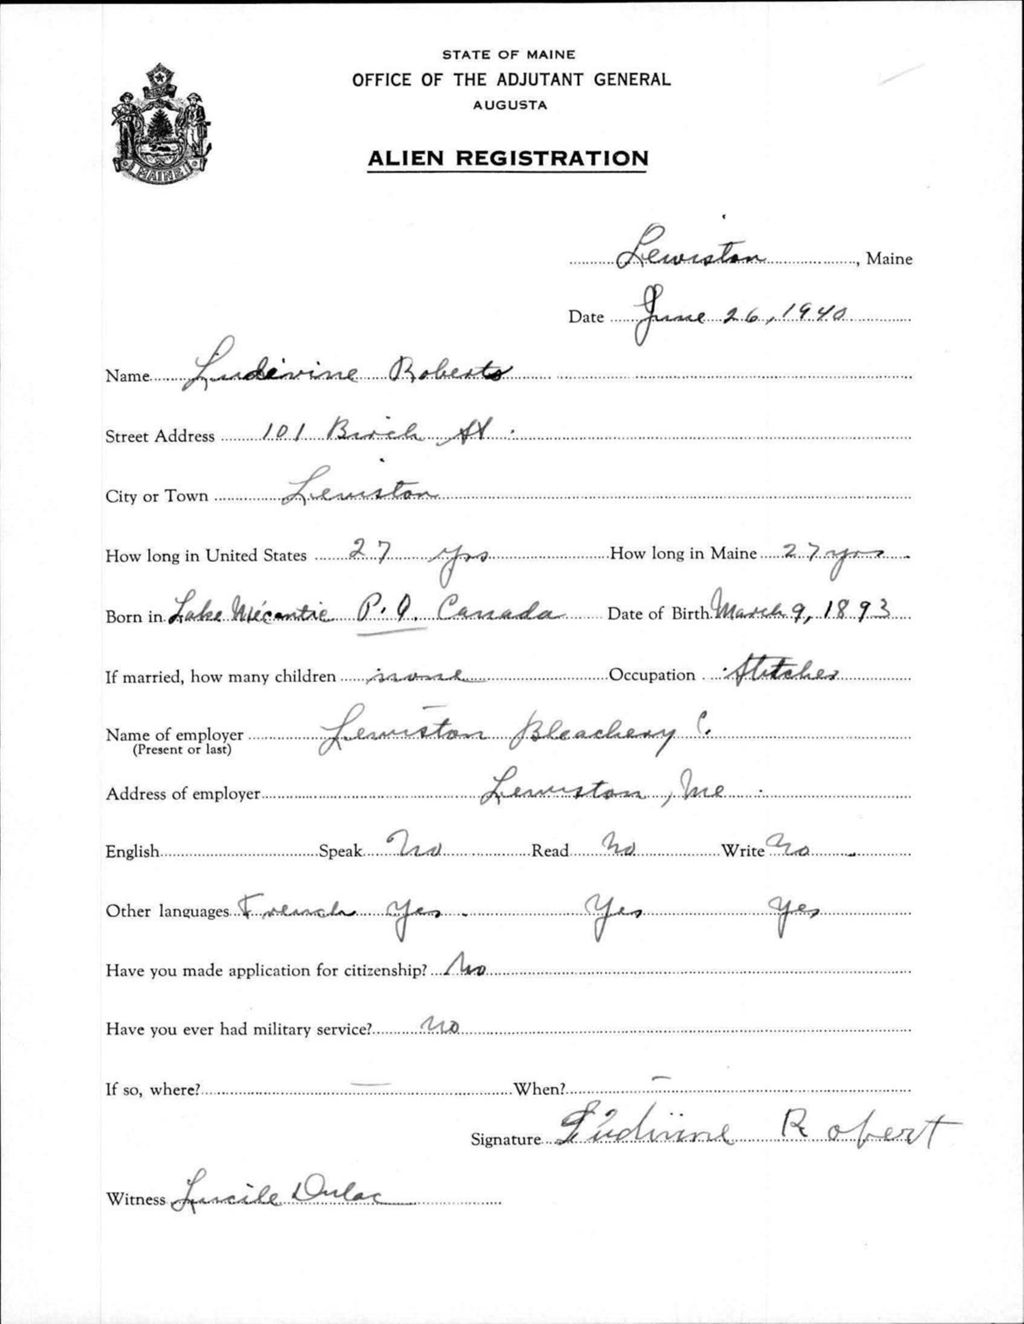 STATE OF MAINE
OFFICE OF THE ADJUTANT GENERAL
AUGUSTA
ALIEN REGISTRATION
MAINE
Lewiston, Maine
Date June 26, 1940
Name Ludivine Roberts
Street Address 101 Birch St.
City or Town Lewiston
How long in United States 27 yrs How long in Maine 27 yrs
Born in Lake Mécantic P.Q. Canada Date of Birth March 9, 1893
If married, how many children none Occupation Stitcher
Name of employer Lewiston Bleachery C.
(Present or last)
Address of employer Lewiston, Me.
English Speak No Read No Write No
Other languages French Yes. Yes Yes
Have you made application for citizenship? No
Have you ever had military service? No
If so, where? — When? —
Signature Ludivine Robert
Witness Lucile Dulac